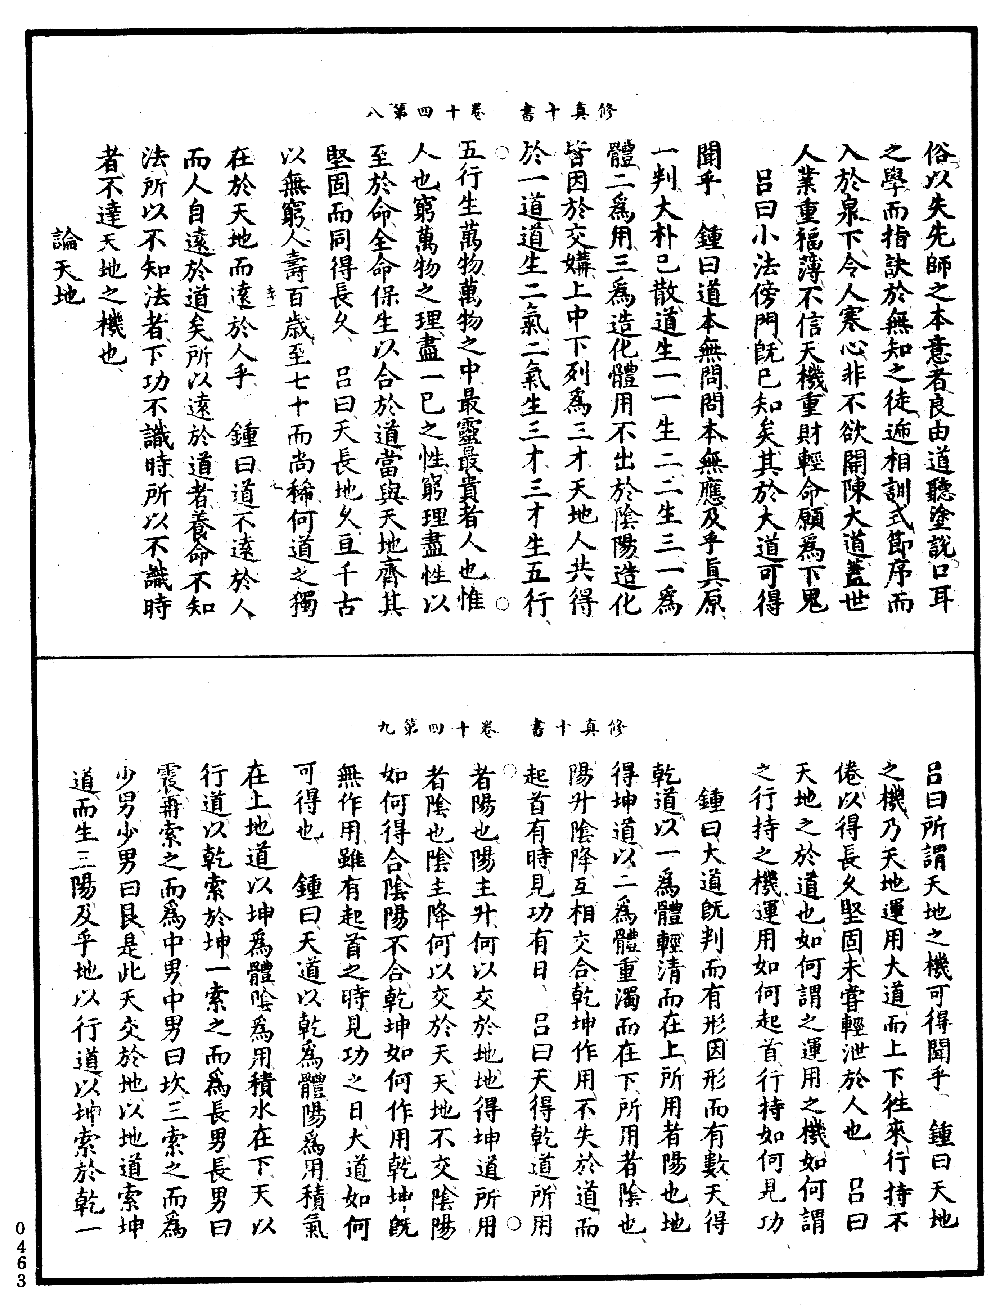 修真十書　卷十四第八
俗以失先師之本意者良由道聽塗說口耳
之學而指訣於無知之徒遞相訓式節序而
入於泉下令人寒心非不欲開陳大道蓋世
人業重福薄不信天機重財輕命願爲下鬼
呂曰小法傍門既已知矣其於大道可得
聞乎　鍾曰道本無問問本無應及乎眞原
一判大朴已散道生一一生二二生三一爲
體二爲用三爲造化體用不出於陰陽造化
皆因於交媾上中下列爲三才天地人共得
於一道道生二氣二氣生三才三才生五行
五行生萬物萬物之中最靈最貴者人也惟
人也窮萬物之理盡一己之性窮理盡性以
至於命全命保生以合於道當與天地齊其
堅固而同得長久　呂曰天長地久亘千古
以無窮人壽百歲至七十而尚稀何道之獨
在於天地而遠於人乎　鍾曰道不遠於人
而人自遠於道矣所以遠於道者養命不知
法所以不知法者下功不識時所以不識時
者不達天地之機也
論天地
修真十書　卷十四第九
呂曰所謂天地之機可得聞乎　鍾曰天地
之機乃天地運用大道而上下往來行持不
倦以得長久堅固未嘗輕泄於人也　呂曰
天地之於道也如何謂之運用之機如何謂
之行持之機運用如何起首行持如何見功
鍾曰大道既判而有形因形而有數天得
乾道以一爲體輕清而在上所用者陽也地
得坤道以二爲體重濁而在下所用者陰也
陽升陰降互相交合乾坤作用不失於道而
起首有時見功有日　呂曰天得乾道所用
者陽也陽主升何以交於地地得坤道所用
者陰也陰主降何以交於天天地不交陰陽
如何得合陰陽不合乾坤如何作用乾坤既
無作用雖有起首之時見功之日大道如何
可得也　鍾曰天道以乾爲體陽爲用積氣
在上地道以坤爲體陰爲用積水在下天以
行道以乾索於坤一索之而爲長男長男曰
震再索之而爲中男中男曰坎三索之而爲
少男少男曰艮是此天交於地以地道索坤
道而生三陽及乎地以行道以坤索於乾一
0463